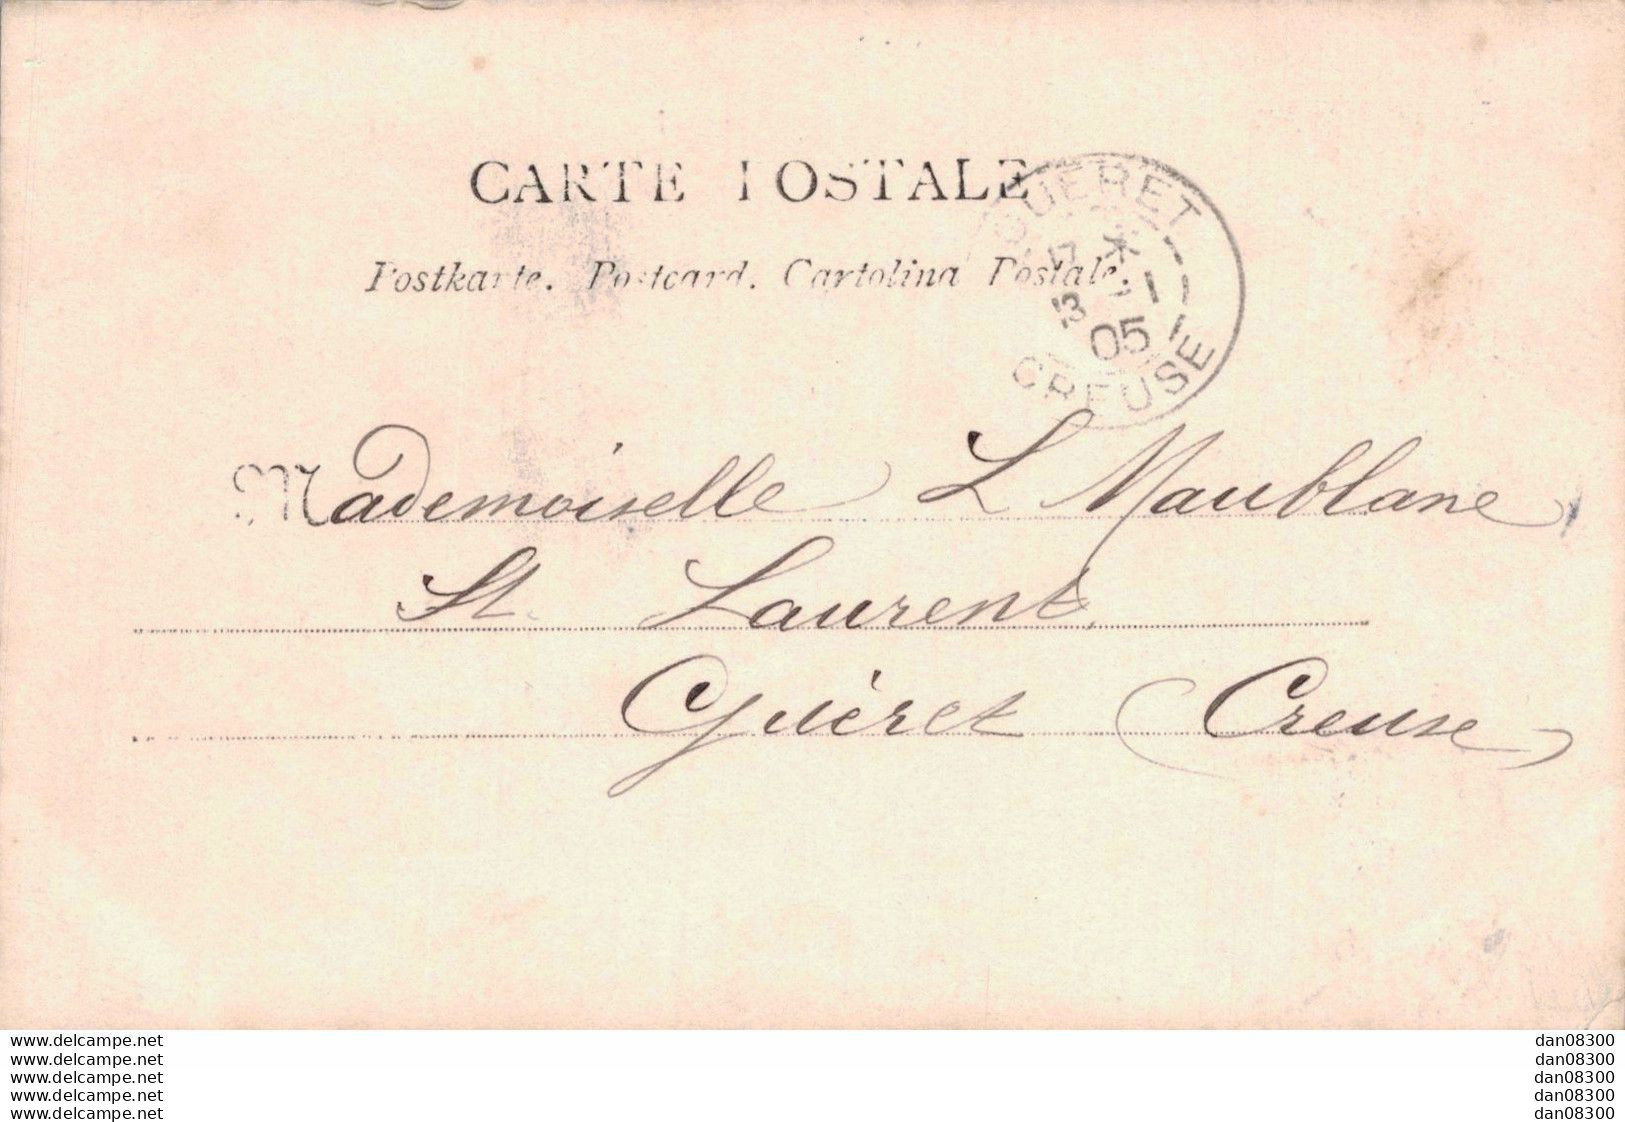 CARTE POSTALE
Postkarte. Postcard. Cartolina Postale.
GUÉRET
05
CREUSE
Mademoiselle L Maublane
St. Laurent
Guéret (Creuse)
www.delcampe.net dan08300
www.delcampe.net dan08300
www.delcampe.net dan08300
www.delcampe.net dan08300
www.delcampe.net dan08300